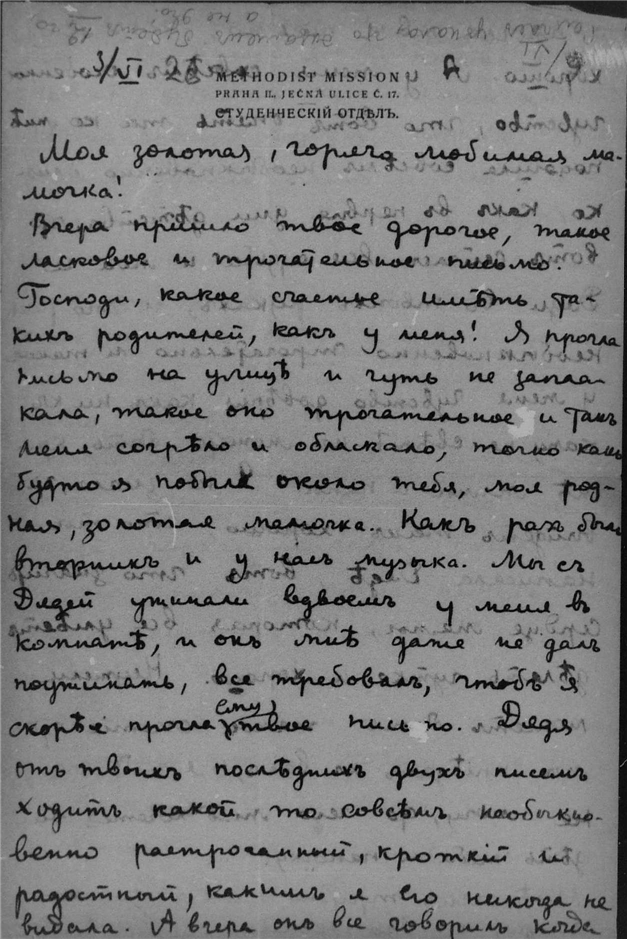 3/VI
METHODIST MISSION
PRAHA II., JEČNÁ ULICE Č. 17.
СТУДЕНЧЕСКІЙ ОТДѢЛЪ.
Моя золотая, горячо любимая ма-
мочка!
Вчера пришло твое дорогое, такое
ласковое и трогательное письмо.
Господи, какое счастье имѣть та-
кихъ родителей, какъ у меня! Я прочла
письмо на улицѣ и чуть не запла-
кала, такое оно трогательное и такъ
меня согрѣло и обласкало, точно какъ
будто я побыла около тебя, моя род-
ная, золотая мамочка. Какъ разъ былъ
вторникъ и у насъ музыка. Мы съ
Дядей ужинали вдвоемъ у меня въ
комнатѣ, и онъ мнѣ даже не далъ
поужинать, все требовалъ, чтобъ я
скорѣе прочла ему твое письмо. Дядя
отъ твоихъ послѣднихъ двухъ писемъ
ходитъ какой то совсѣмъ необыкно-
венно растроганный, кроткій и
радостный, какимъ я его никогда не
видала. А вчера онъ все говорилъ когда